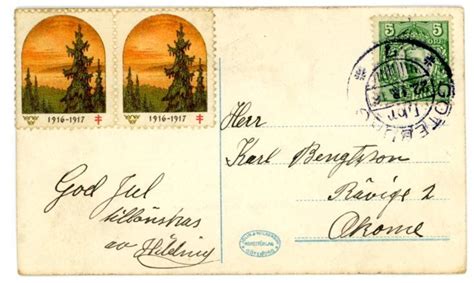 1916-1917
1916-1917
5 5
GÖTEBORG
Herr
Karl Bengtsson
Rävige 2
Åkome
God Jul
tillönskas
av Hilding